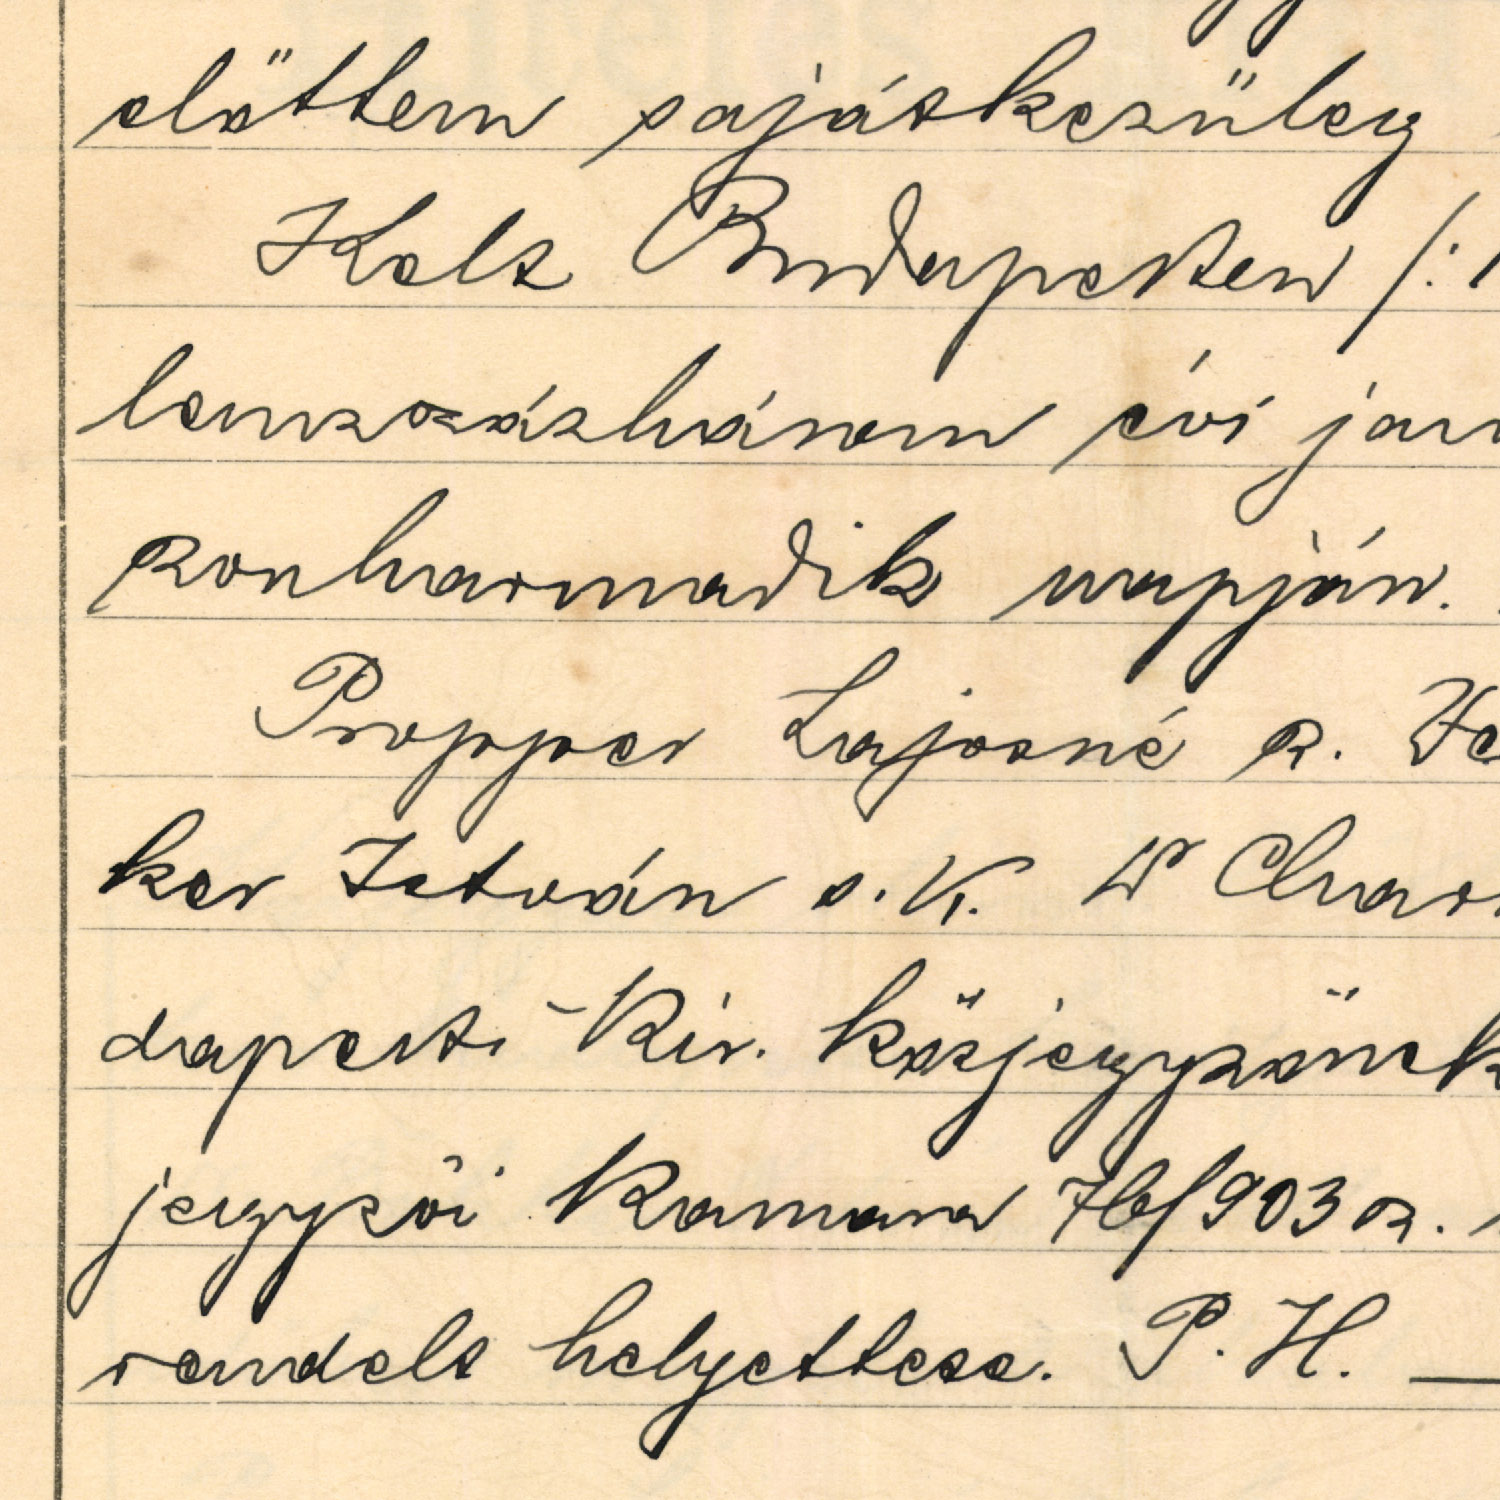 előttem sajátkezüleg
Kelt Budapesten /:
lenczszázhárom évi jan
zonharmadik napján.
Propper Lajosné sz. We
ker István s. k. Dr Char
dapesti kir. közjegyzőnek
jegyzői kamara 76/903 sz.
rendelt helyettese. P. H. —